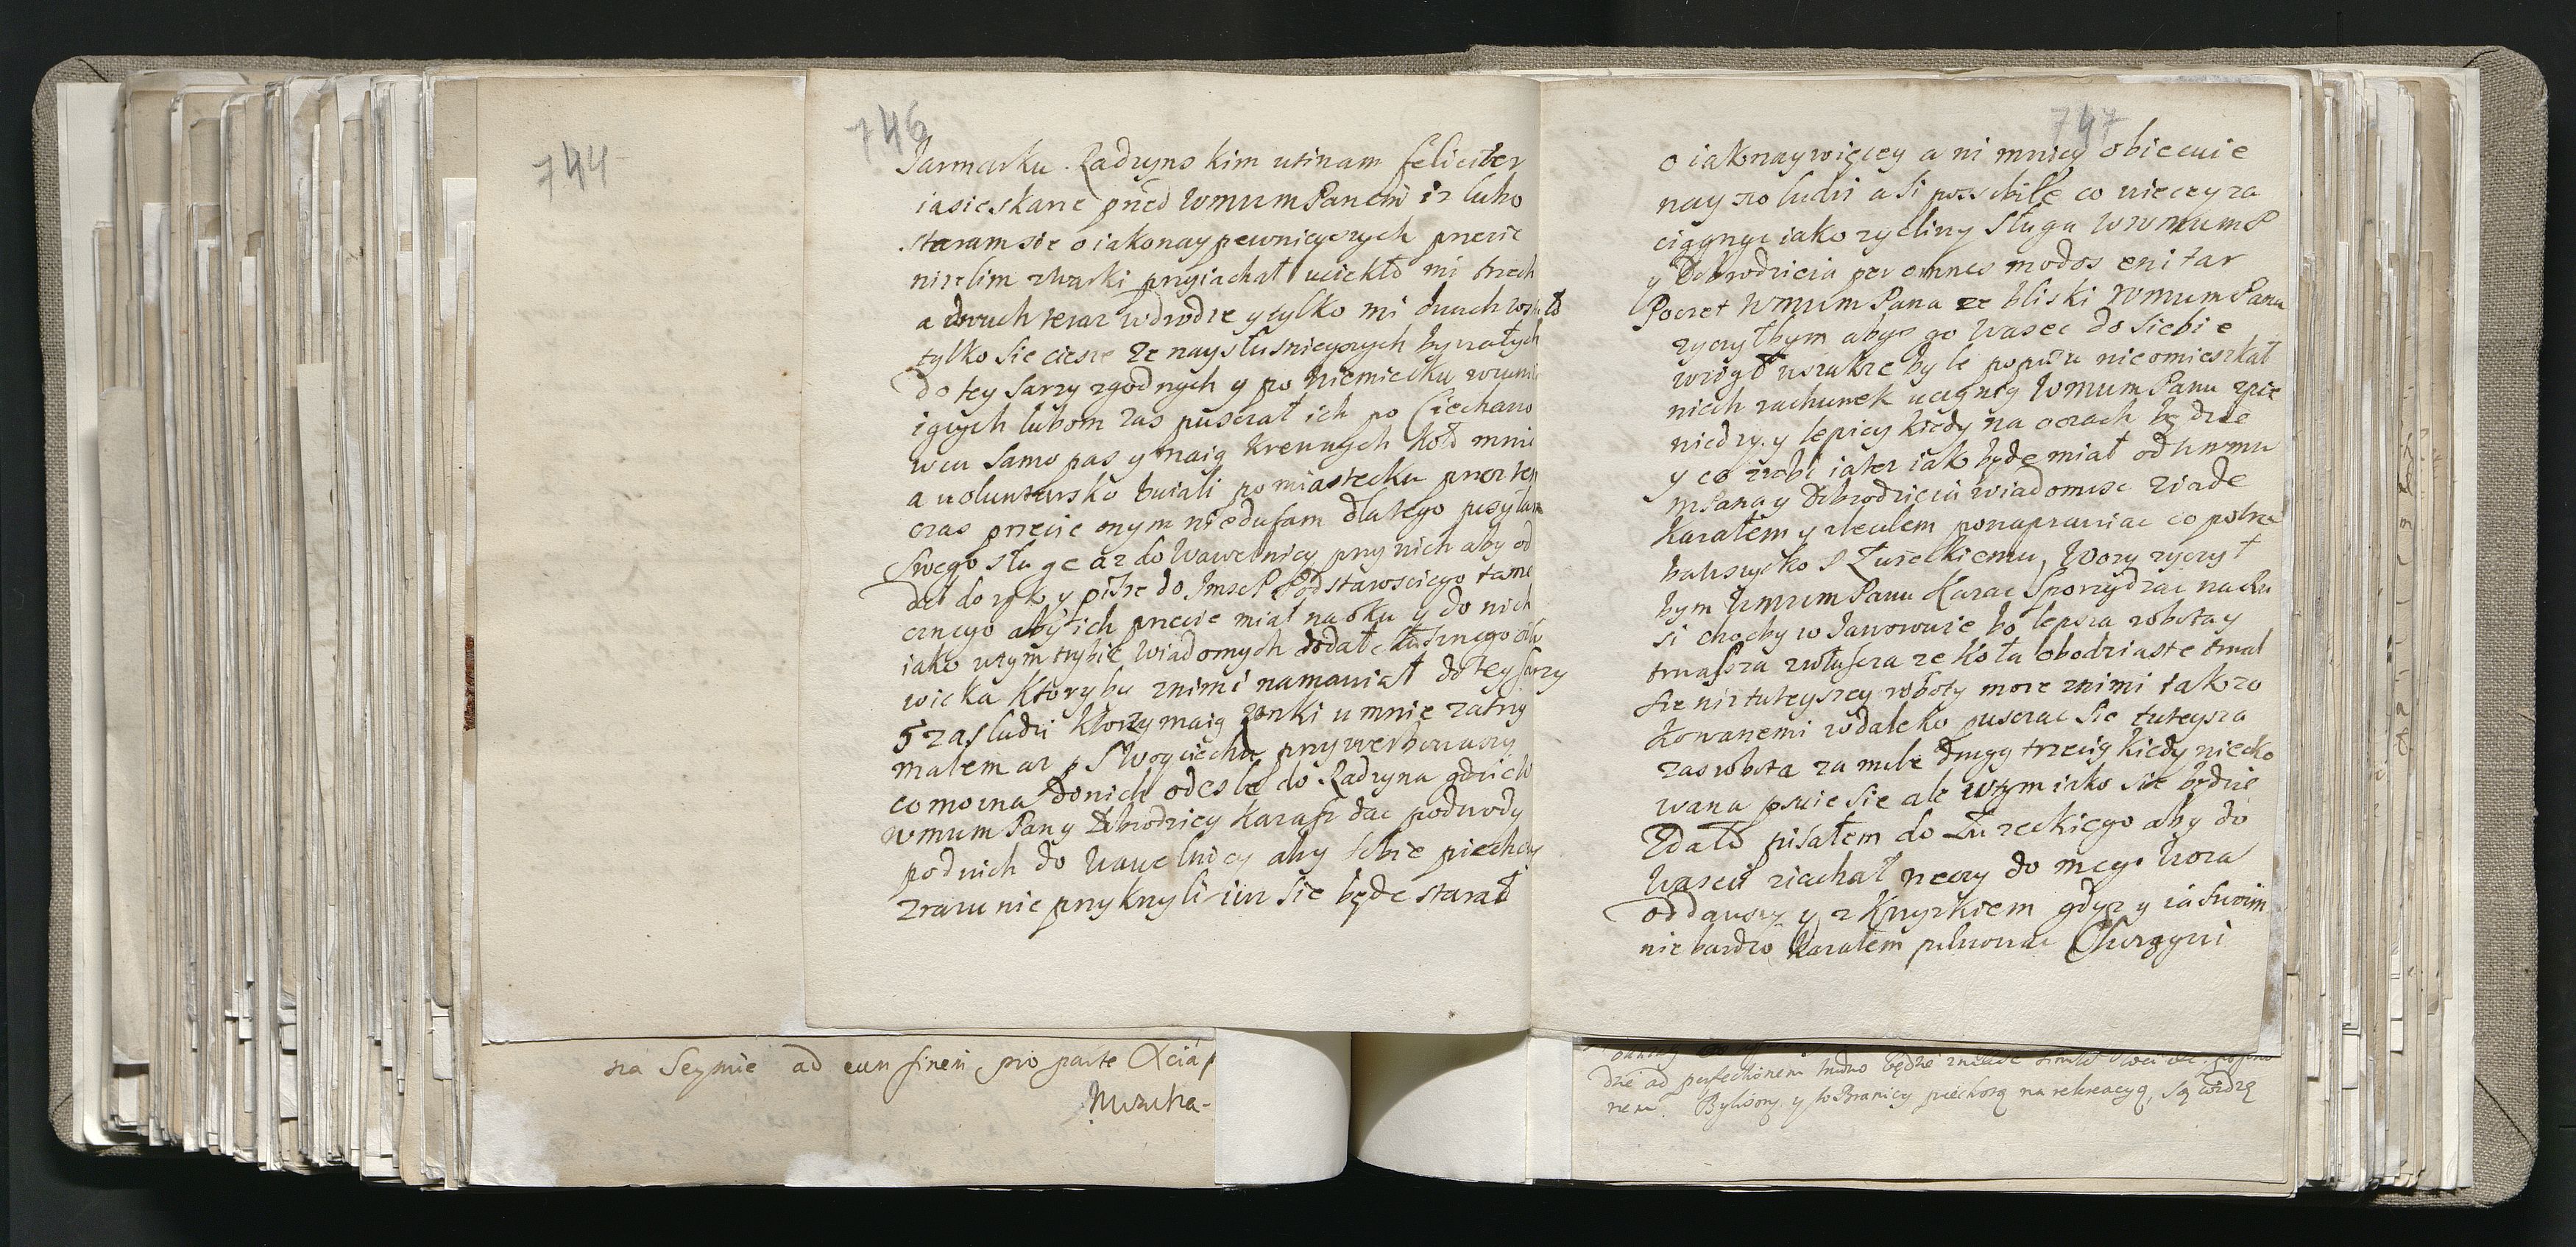 744
746
Jarmarku. Radzyns kim utinam feliciter
ia sie skarze przed WmumPanem iz lubo
staram sie o iakonaypewnieyszych przecie
nizelim zWarki przyiachał uciekło mi trzech
a dwuch teraz wdrodze y tylko mi dwuch
tylko Sie ciesze ze naysłusnieyszych bywałych
do tey Sarzy zgodnych y po Niemiecku
iących lubom zas puszczał ich po Ciechano
wcu Samo pas y maią krewnych koło mnie
a voluntarsko buiali po miastecku przez ten
czas przecie onym niedufam dlatego posyłam
Swego sługe az do Wawelnicy przy nich aby od
dał do rąk y pisze do Jmsci P Podstarosciego tame
cznego aby ich przecie miał na oku y do nich
iako wtym trybie wiadomych dodał
wieka ktoryby znimi namawiał do tey sarzy
5 zas ludzi ktorzy maią zonki u mnie
małem az p S Woyciechu przywerbowawszy
co mozna do nich odesle do Radzyna gdzie W
WmumPan y Dobrodziey kazesz dac podwody
pod nich do Wawelnicy aby sobie piechoty
zrazu nie przykrzyli iuz sie będe starał
747
o iaknaywięcey a ni mniey obiecuie
nay 20 ludzi a Si possibile co wiecey za
ciągnąc iako zycliwy Sługa WWmumP
y Dobrodzieia per omnes modos enitar
Poczet WmumPana ze bliski WmumPana
zyczyłbym abys go Wasec do siebie
wziył wszakze by le popisu nieomieszkał
niech rachunek uczynią WmumPanu zpie
niedzy y lepiey kiedy na oczach będzie
y co zrobi iatez iak będe miał od Wmu
mPana y Dobrodzieia wiadomosc ziade
Kazałem y zleciłem ponaprawiac co potrze
ba wszytko P Zurečkiemu, Wozy zyczył
bym WmumPanu Kazac Sporządzac na Ru
si chocby w Janowcu bo lepsza robota y
trwalsza zwłaszcza ze koła obodziaste
sie niz tuteyszey roboty moze znimi tak 20
kowanemi w daleko puszczac sie tuteysza
zas robota za mile drugą trzecią kiedy nieko
wana psuie sie ale wtym iako sie będzie
Zdało pisałem do Zureckiego aby do
Wasci ziachał rzeczy do mego Dwora
oddawszy y z Krzyzkiem gdyz y ia
nie bardzo kazałem pilnowac Chorązy
na Seymie ad eum finem, pro parte Xcia
dzie ad perfectionem trudno będzie
nem. Byliśmy y w Branicy piechotą na rekreacyą, Są widzą